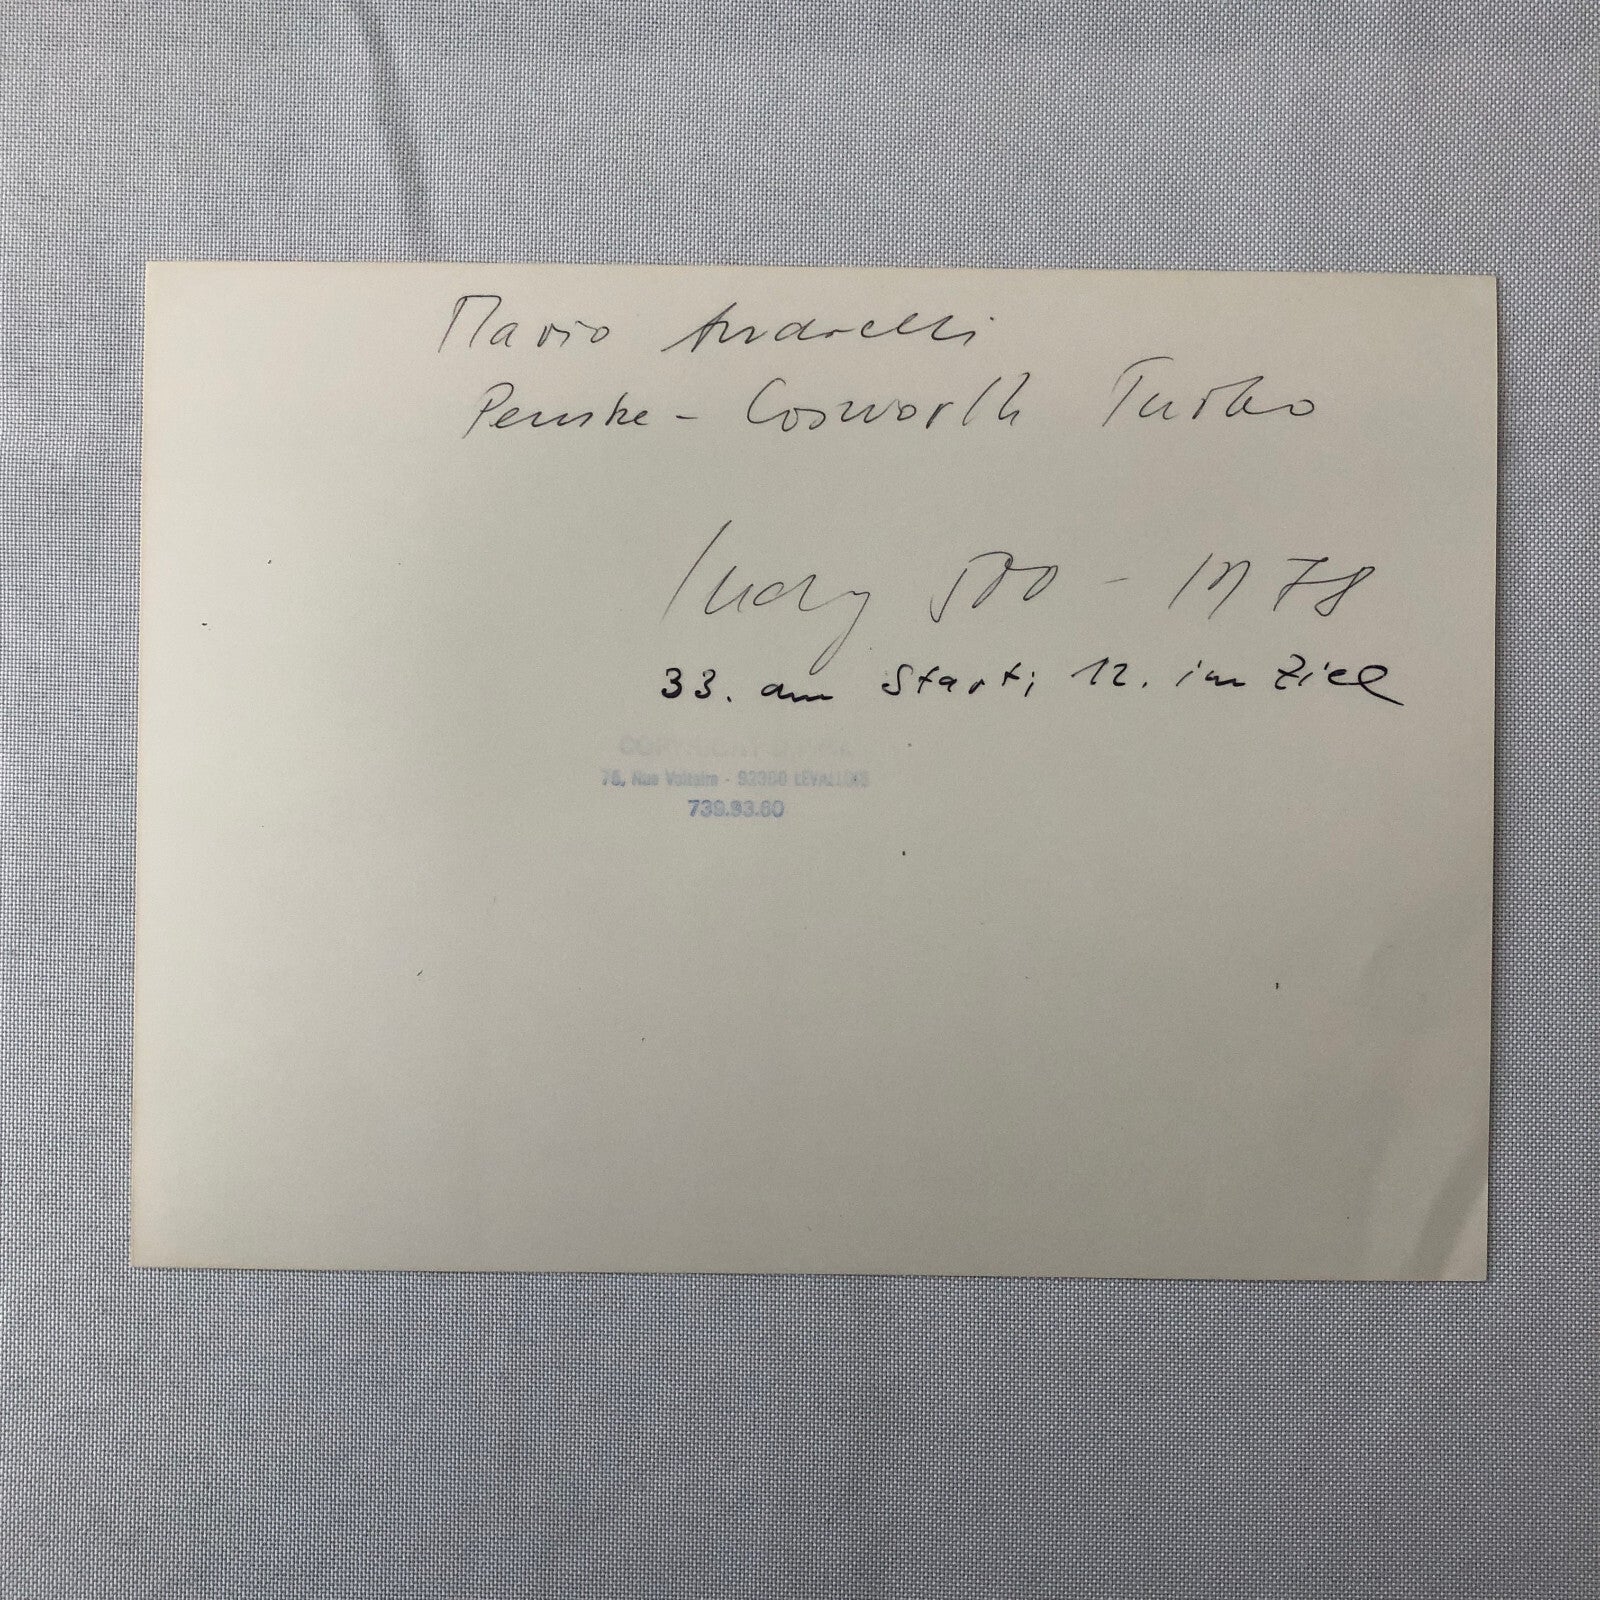 Mario Andretti
Penske - Cosworth Turbo
Indy 500 - 1978
33. am Start; 12. im Ziel
COPYRIGHT
78, Rue Voltaire - 92300 LEVALLOIS
739.93.60